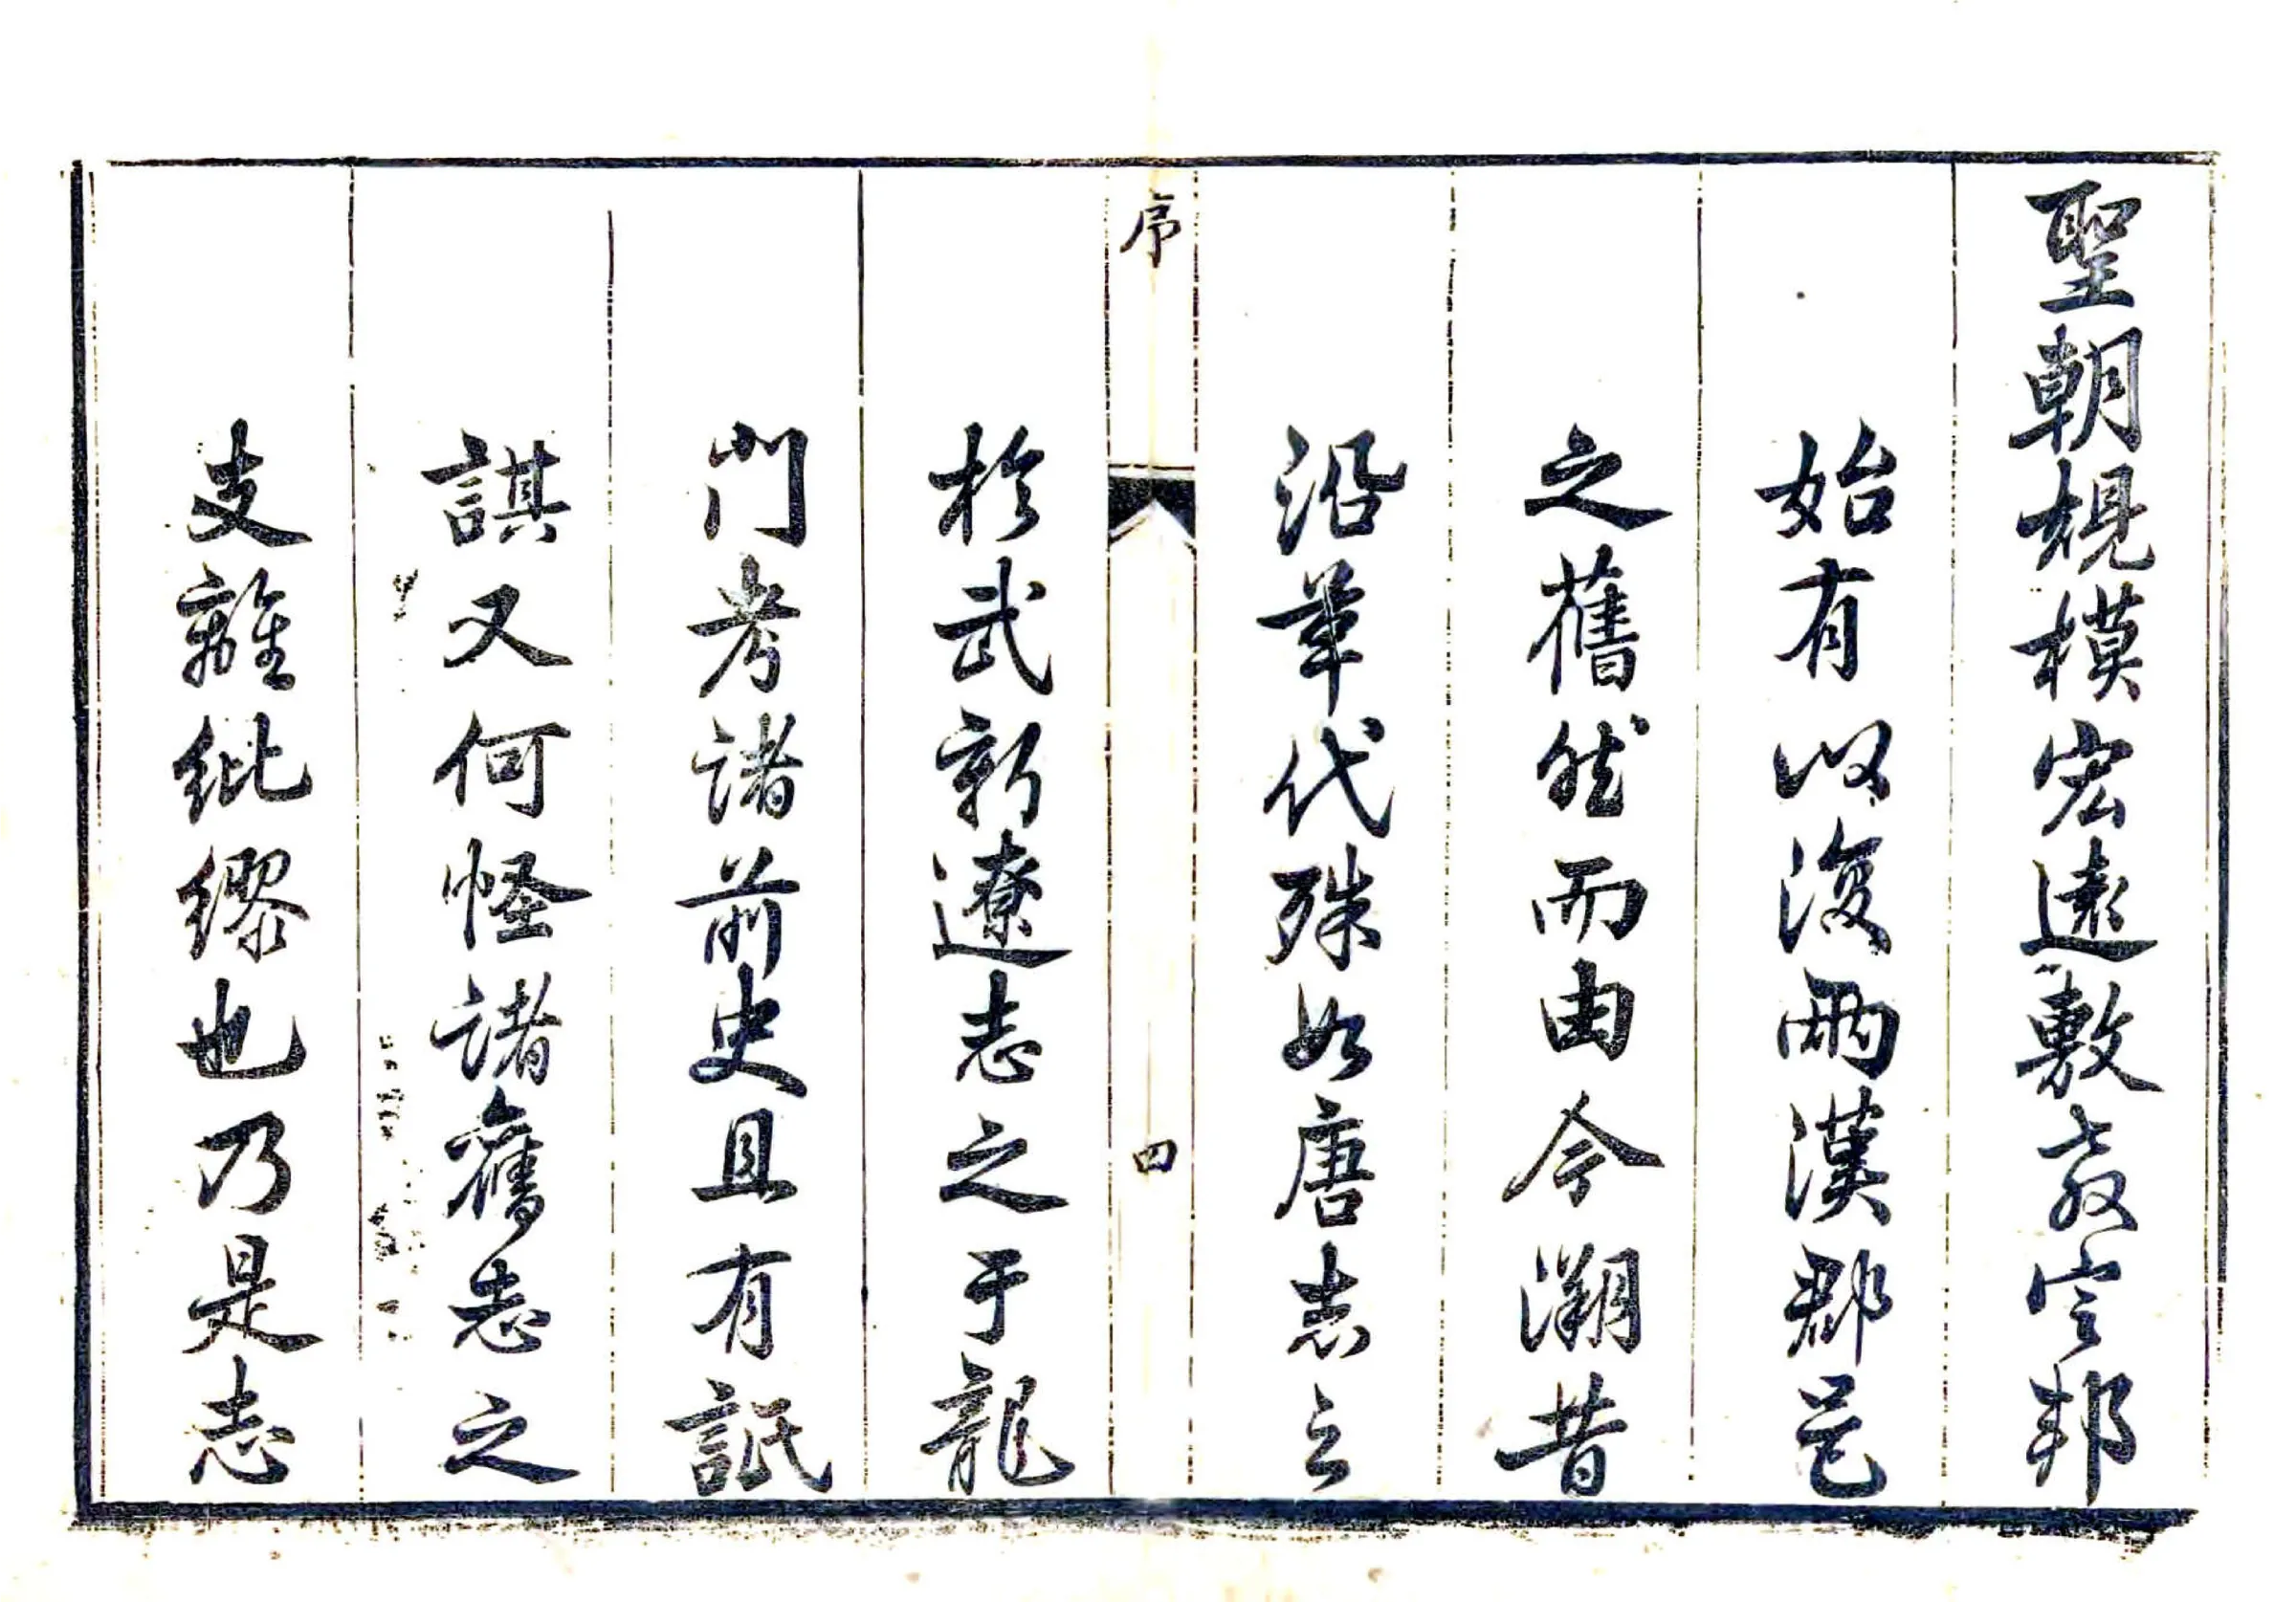 聖朝規模宏遠敷教定邦
始有以復兩漢郡邑
之舊然而由今溯昔
沿革代殊如唐志之
序
四
於武新遼志之于龍
門考諸前史且有訛
諆又何怪諸舊志之
支離紕繆也乃是志